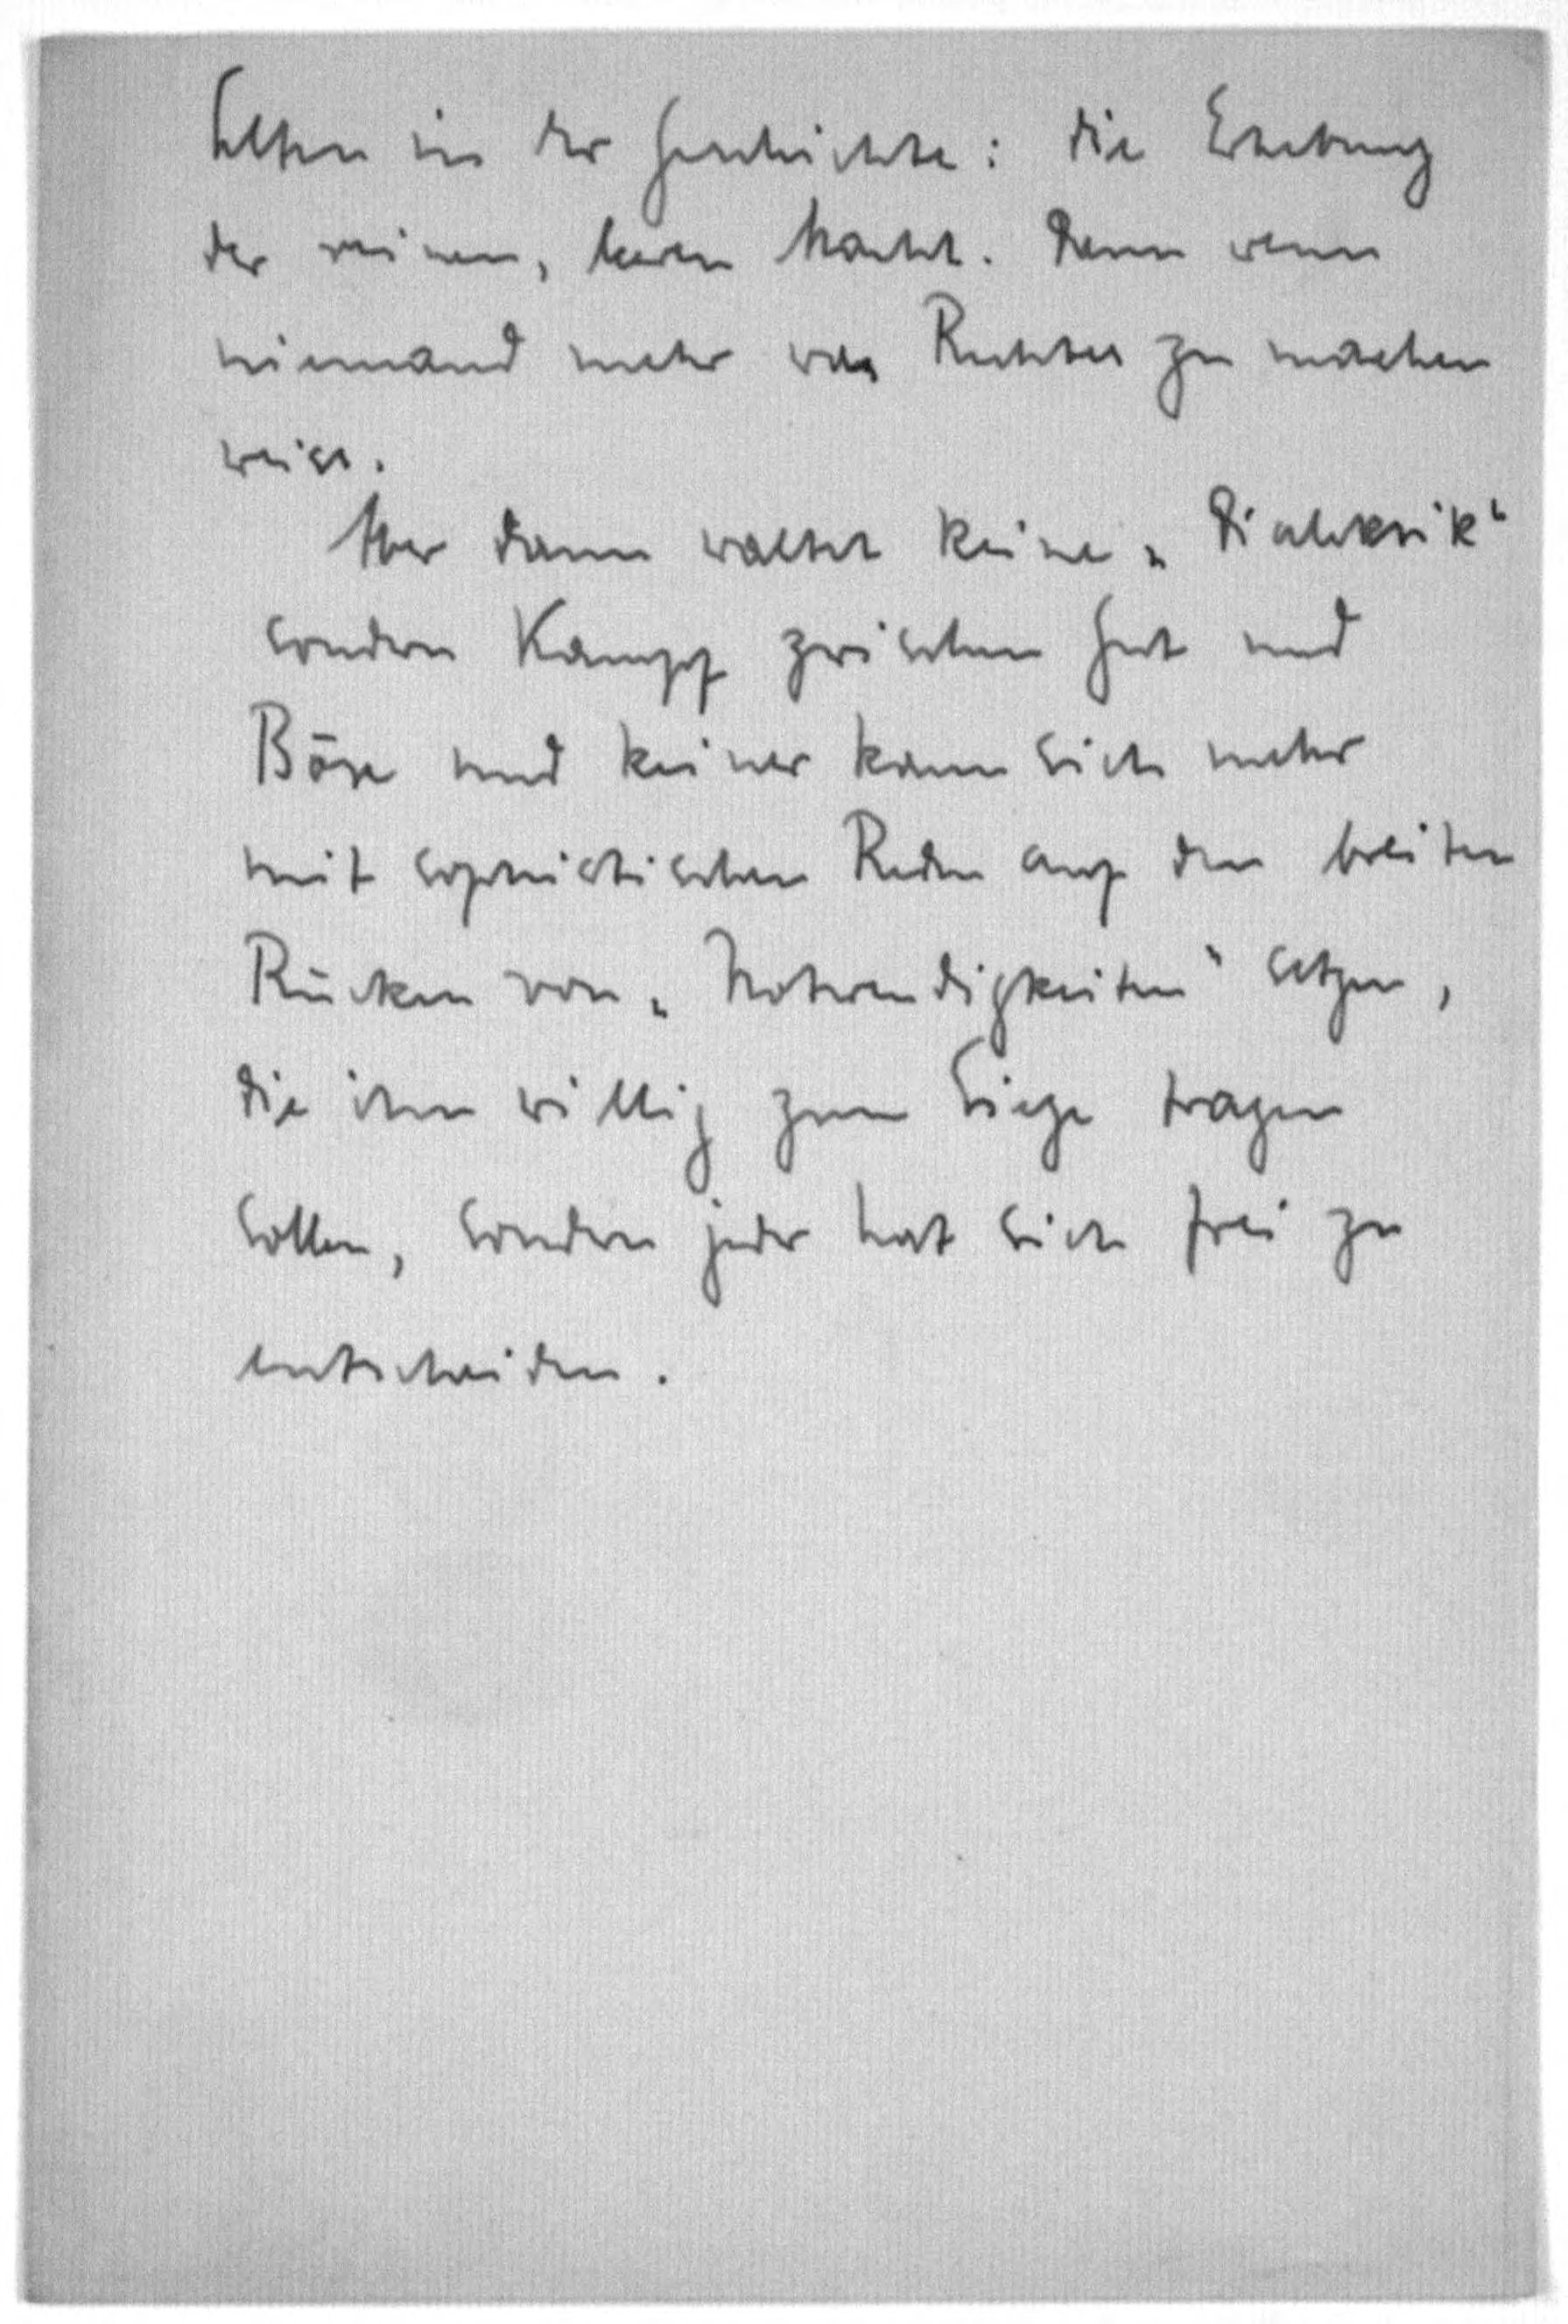 selten in der Geschichte: die Erhebung
der reinen, leeren Macht. Dann wenn
niemand mehr was Rechtes zu machen
weiss.
Aber dann waltet keine „Dialektik“
sondern Kampf zwischen Gut und
Böse und keiner kann sich mehr
mit sophistischen Reden auf den breiten
Rücken von „Notwendigkeiten“ setzen,
die ihn willig zum Siege tragen
sollen, sondern jeder hat sich frei zu
entscheiden.